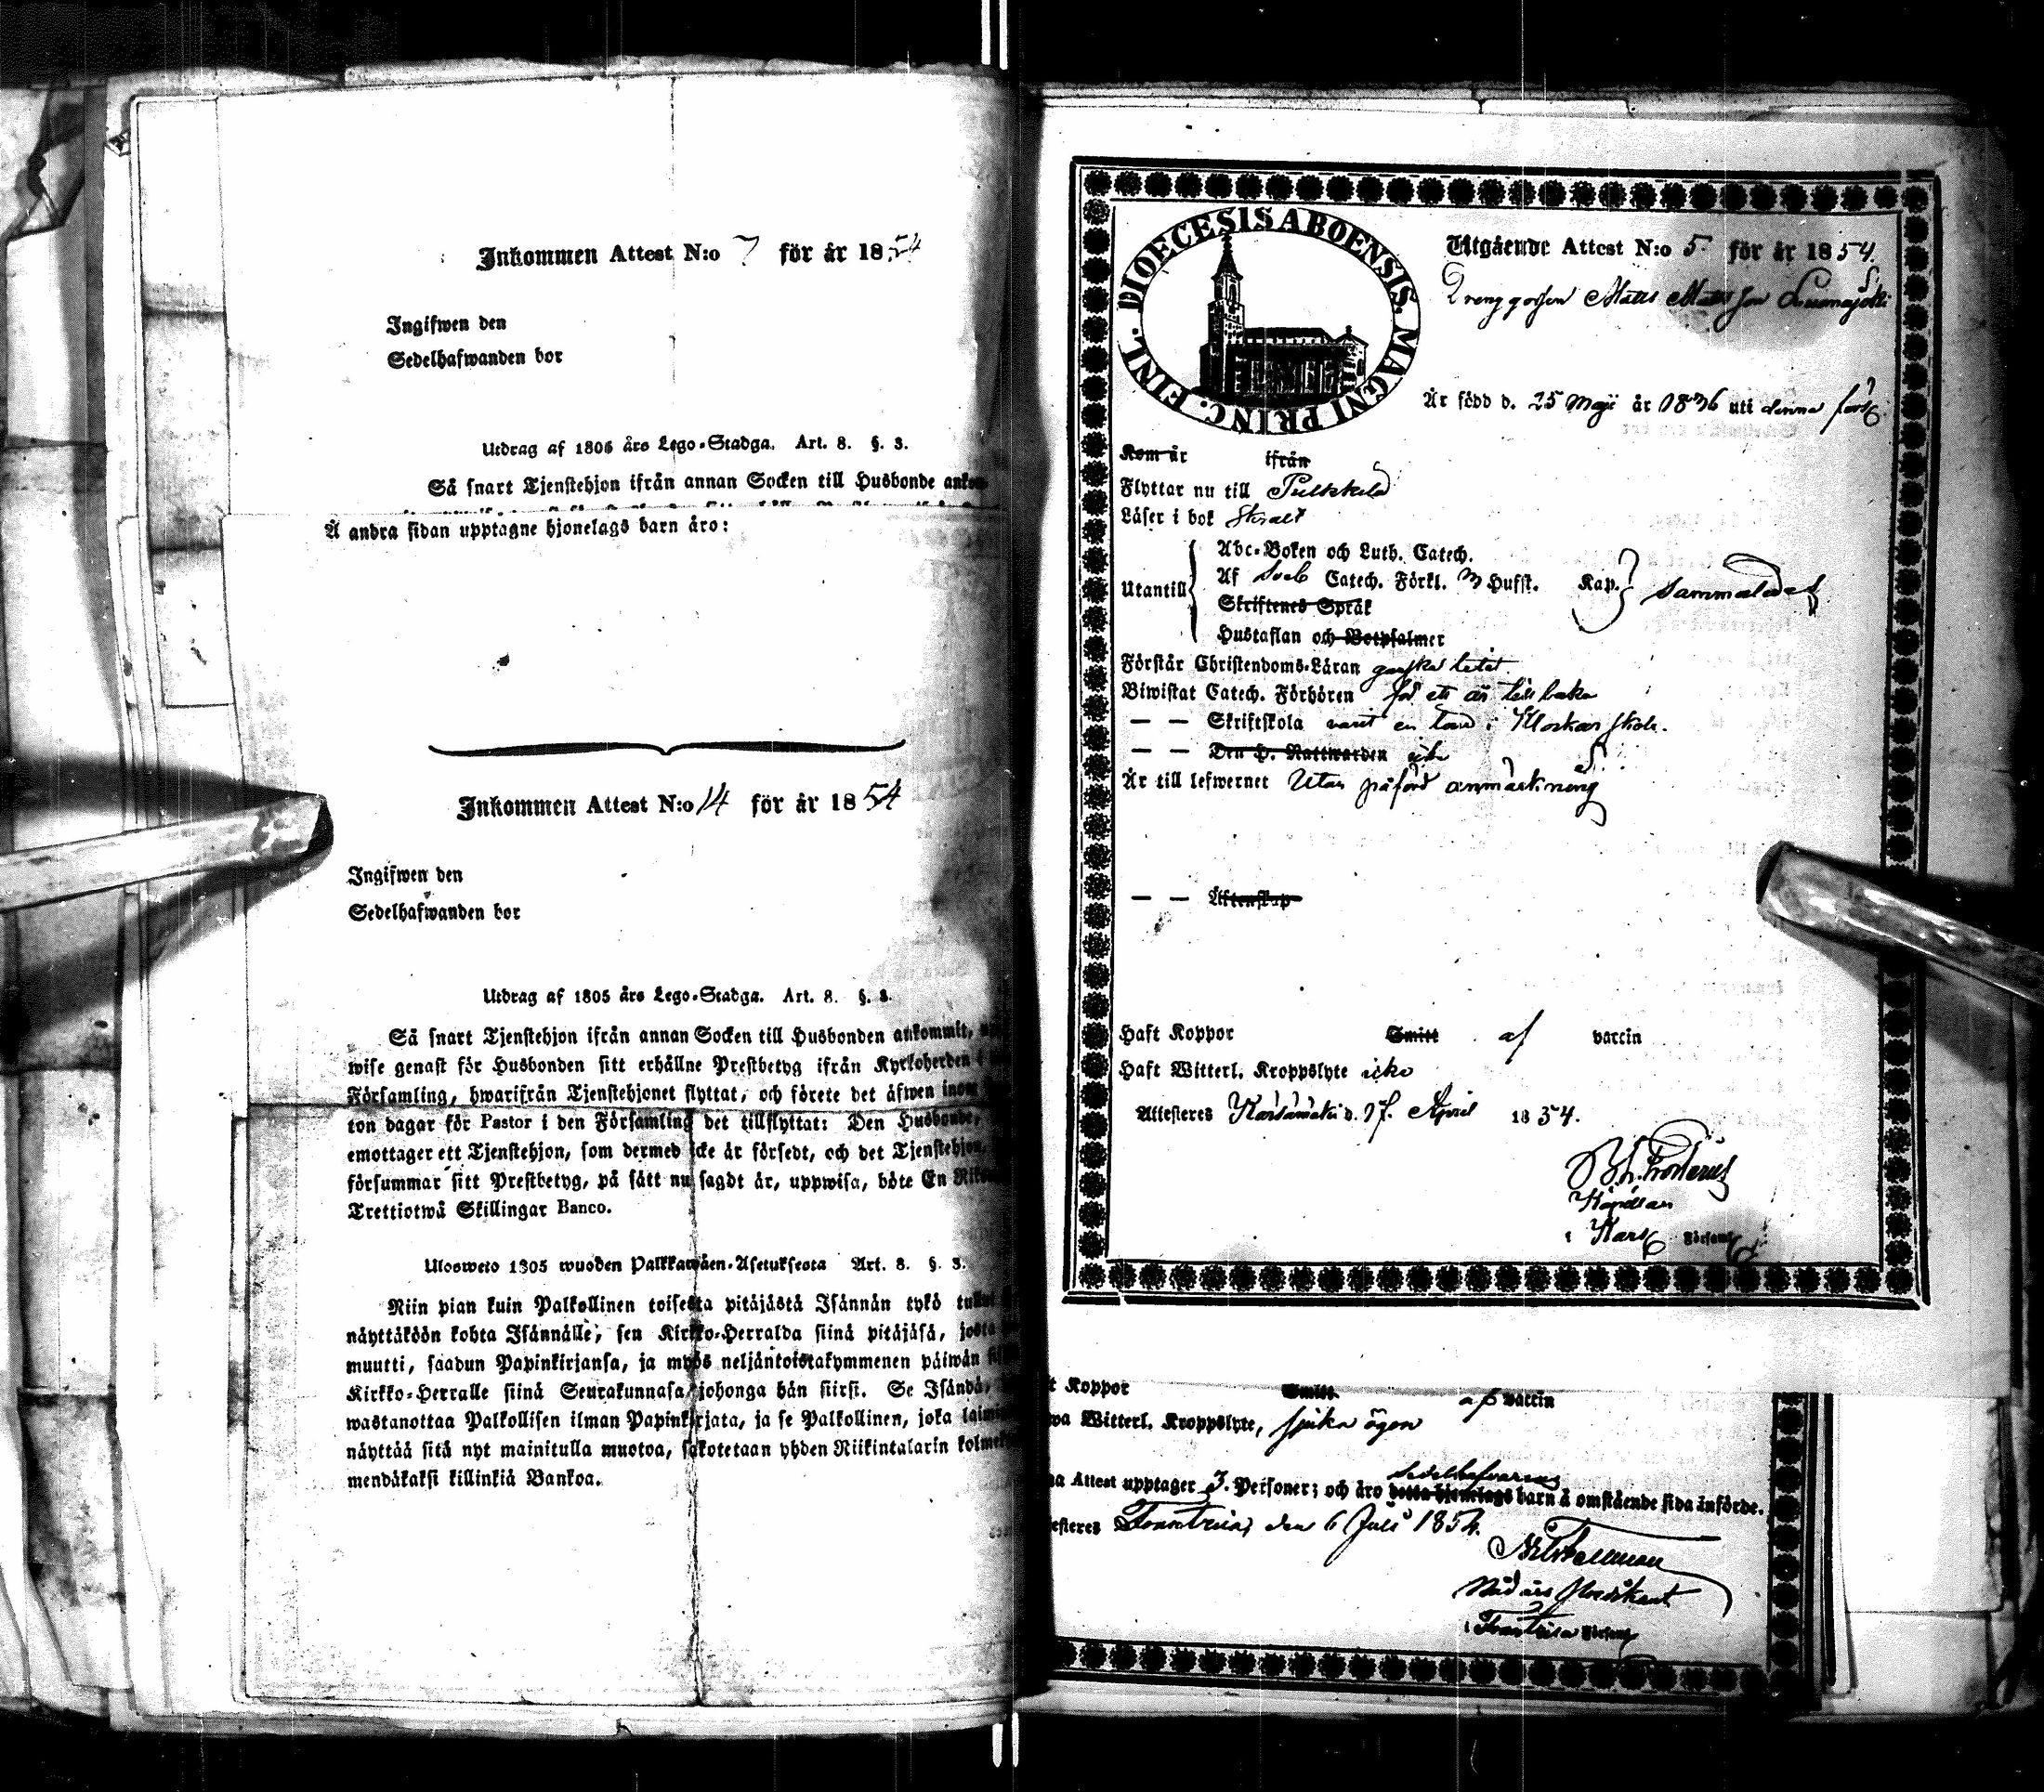 Inkommen Attest N:o 7 för år 1854
Ingifwen den
Sedelhafwanden bor
Utdrag af 1805 års Lego-Stadga. Art. 8. §. 3.
Så snart Tjenstehjon ifrån annan Socken till Husbonde
Å andra sidan upptagne hjonelags barn äro:
Inkommen Attest N:o 14 för år 1854
Ingifwen den
Sedelhafwanden bor
Utdrag af 1805 års Lego-Stadga. Art. 8. §. 3.
Så snart Tjenstehjon ifrån annan Socken till Husbonden ankommit,
wise genast för Husbonden sitt erhållne Prestbetyg ifrån Kyrkoherden i
Församling, hwarifrån Tjenstehjonet flyttat, och förete det äfwen inom
ton dagar för Pastor i den Församling det tillflyttat: Den Husbonde,
emottager ett Tjenstehjon, som dermed icke är försedt, och det Tjenstehjon,
försummar sitt Prestbetyg, på sätt nu sagdt är, uppwisa, böte En
Trettiotwå Skillingar Banco.
Ulosweto 1805 wuoden Palkkawäen-Asetuksesta Art. 8. §. 3.
Niin pian kuin Palkollinen toisesta pitäjästä Isännän tykö
näyttäköön kohta Isännälle, sen Kirkko-Herralda siinä pitäjäsä, josta
muutti, saadun Papinkirjansa, ja myös neljäntoistakymmenen päiwän
Kirkko-Herralle siinä Seurakunnasa johonga hän siirsi. Se Isändä,
wastanottaa Palkollisen ilman Papinkirjata, ja se Palkollinen, joka
näyttää sitä nyt mainitulla muotoa, sakotetaan yhden Riikintalarin
mendäkaksi killinkiä Bankoa.
DIOECESIS ABOENSIS. MAGNI PRINC. FINL.
Utgående Attest N:o 5 för år 1854.
Matts Matsson
Är född d. 25 Maji år 1836 uti denna förs
Kom år ifrån
Flyttar nu till Pulkkila
Läser i bok svalt
Utantill
Abc-Boken och Luth. Catech.
Af Sveb Catech. Förkl. 3 Hufst. Kap. sammaledes
Skriftenes Språk
Hustaflan och Botpsalmer
Förstår Christendoms-Läran ganska litet
Biwistat Catech. Förhören för ett år tillbaka
— — Skriftskola varit en tid i Klockar skola.
— — Den H. Nattwarden icke
Är till lefwernet Utan påförd anmärkning
— — Äktenskap
Haft Koppor Smitt af vaccin
Haft Witterl. Kroppslyte icke
Attesteres Kärsämäki d. 17. April 1854.
Kapellan
i Kärs Församl
t Koppor Smitt af vaccin
wa Witterl. Kroppslyte, sjuka ögon
na Attest upptager 3. Personer; och äro detta hjonelags sedelhafvarens barn å omstående sida införde.
esteres den 6 Juli 1854.
i Församl